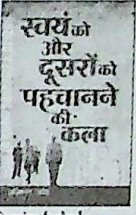 स्वयं को
और
दूसरों को
पहचानने
की
कला